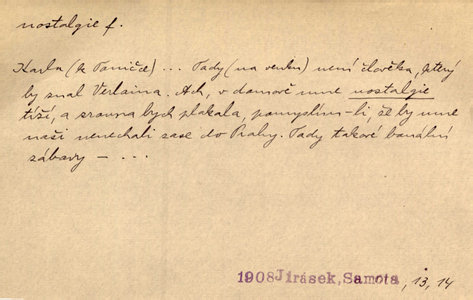 nostalgie f.
Karla (k Toničce) ... Tady (na venku) není člověka, který
by znal Verlaina. Ach, v domově mne nostalgie
tíží, a zrovna bych plakala, pomyslím-li, že by mne
naši nenechali zase do Prahy. Tady takové banální
zábavy – ...
1908 Jirásek, Samota, 13, 14